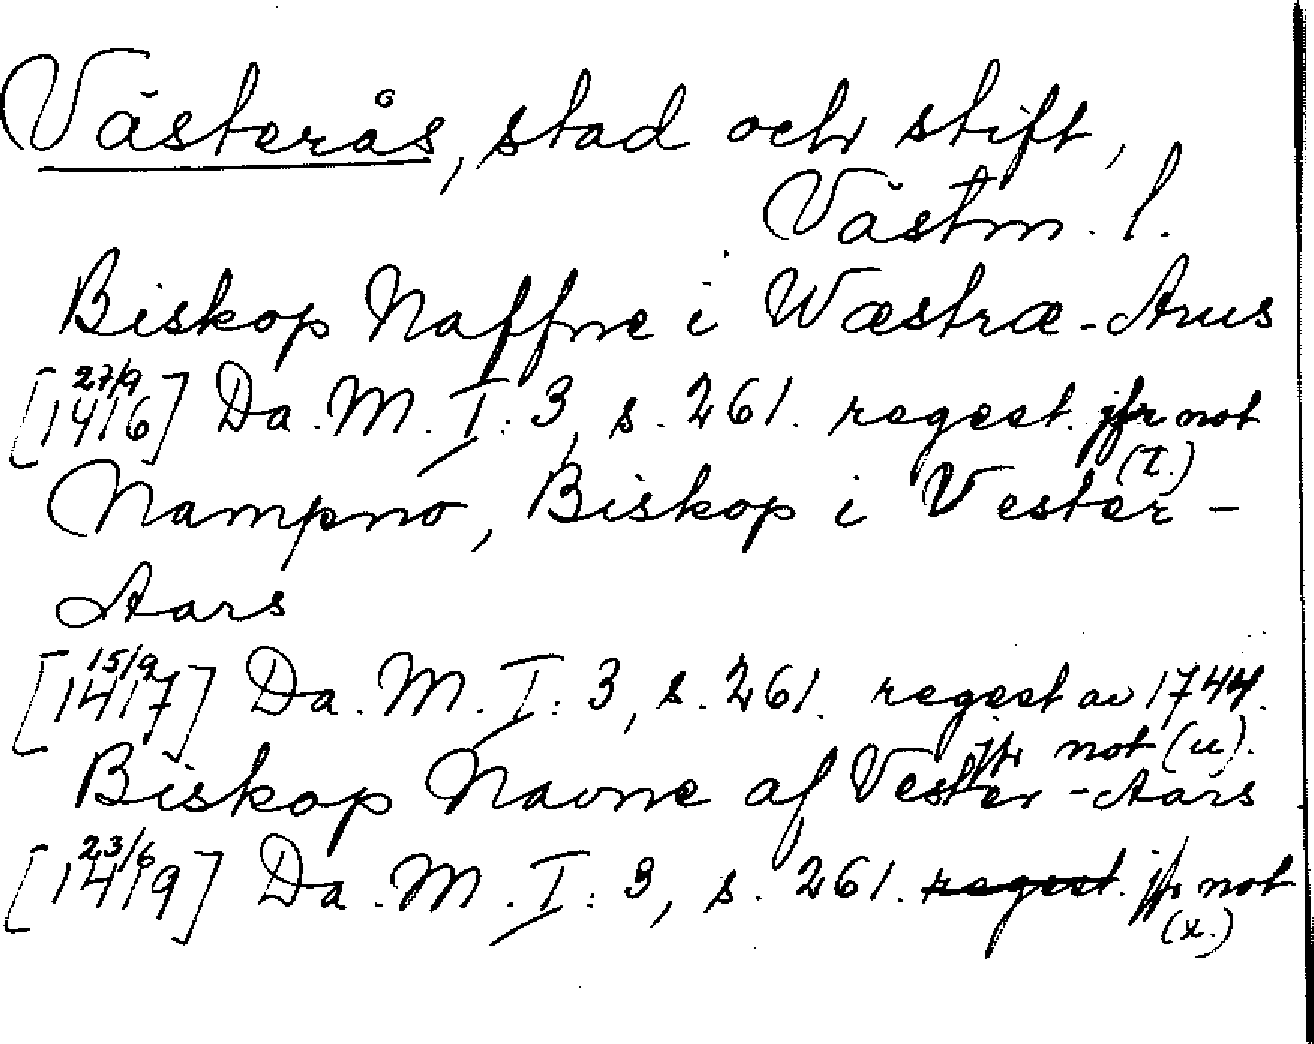 Västerås, stad och stift,
Västm. l.
Biskop Naffne i Wæstræ-Arus
[27/9 1416] Da. M. I: 3, s. 261. regest. jfr not (t.)
Nampno, Biskop i Vester-
Aars
[15/9 1417] Da. M. I: 3, s. 261. regest av 1744.
jfr not (u).
Biskop Navne af Vester-Aars
[23/6 1419] Da. M. I: 3, s. 261. regest. jfr not
(x.)